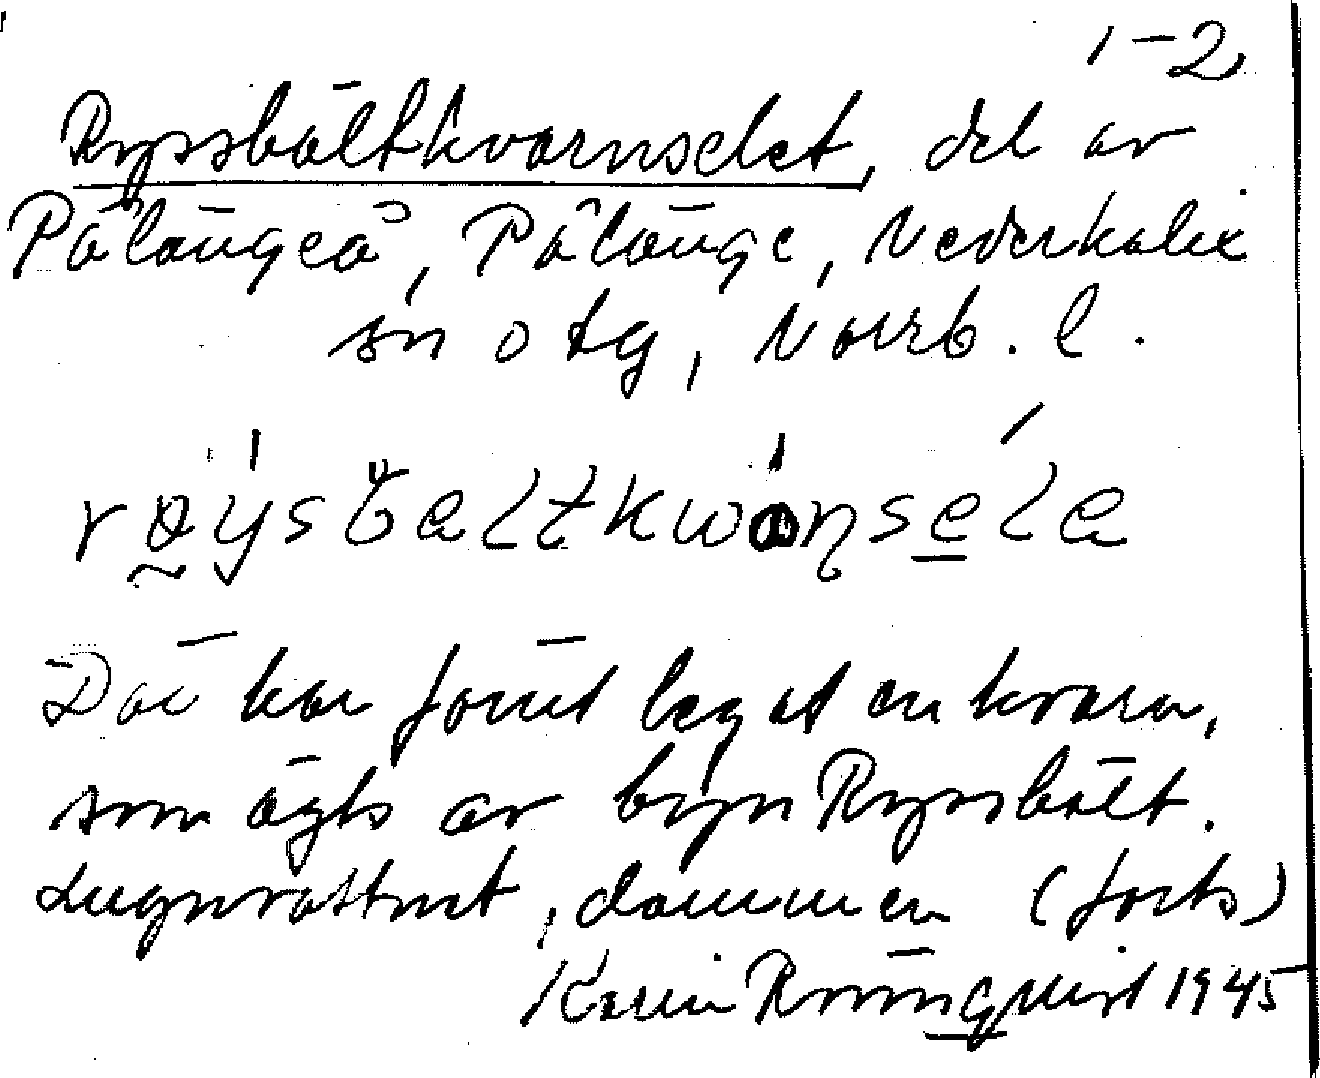 1-2
Ryssbältkvarnselet, del av
Pålängeå, Pålänge, Nederkalix
sn o tg, Norrb. l.
Där har förut legat en kvarn,
som ägts av byn Ryssbält.
Lugnvattnet, dammen (forts)
Karin Rönnquist 1945